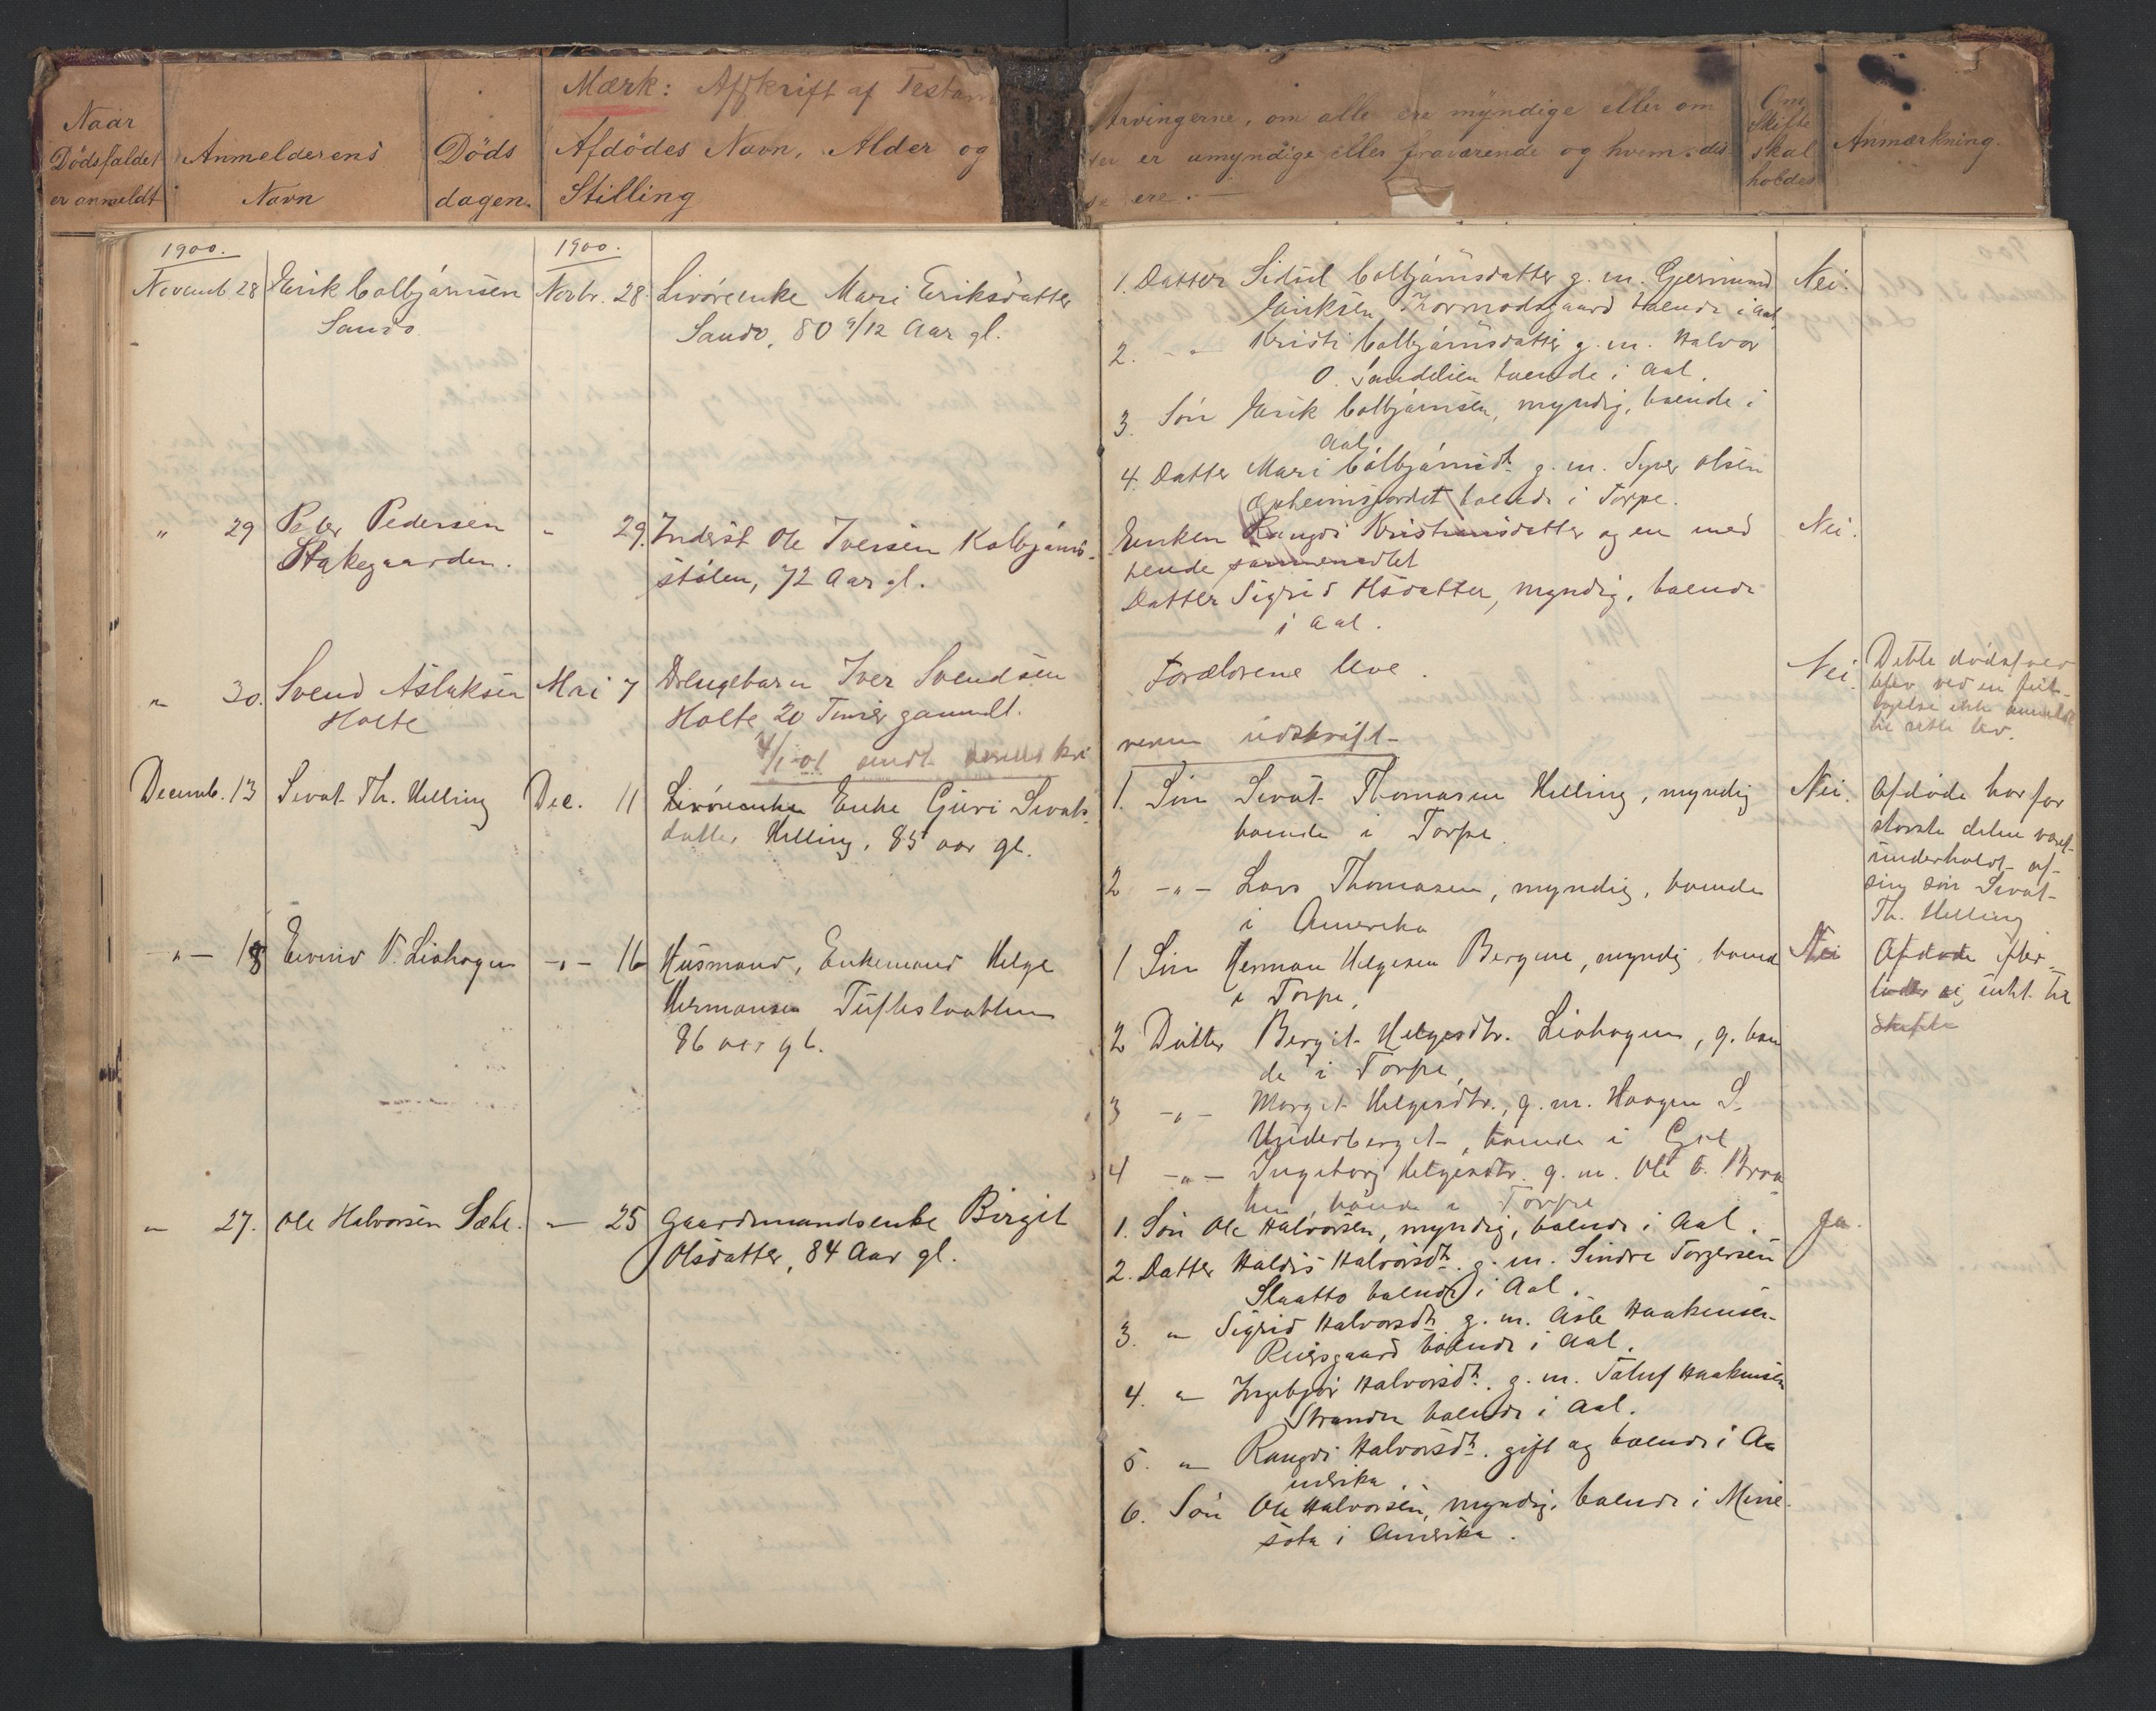 Mærk: Afskrift af Testam
Naar
Dödsfaldet
er anmeldt
Anmelderens
Navn
Döds
dagen.
Afdödes Navn, Alder og
Stilling
Arvingerne, om alle ere myndige eller om
er umyndige eller fraværende og hvem dis-
se ere.
Om
Skifte
skal
holdes
Anmærkning.
1900.
1900.
Novemb 28
Erik Colbjørnsen
Sando.
Novbr. 28.
Livöreenke Mari Eriksdatter
Sando, 80 9/12 Aar gl.
1. Datter Sidsel Colbjørnsdatter g. m. Gjermund
Eriksen Thormodsgaard boende i Aal
2. -"- Kristi Colbjørnsdatter g. m. Halvor
O. Sandelien boende i Aal.
3. Sön Erik Colbjørnsen, myndig, boende i
Aal
4. Datter Mari Colbjørnsdt. g. m. Syver Olsen
Opheimsjordet boende i Torpe.
Nei.
" 29
Peder Pedersen
Stakegaarden.
" 29.
Inderst Ole Iversen Kolbjørns-
stölen, 72 Aar gl.
Enken Rangdi Kristiansdatter og en med
hende sammenavlet
Datter Sigrid Olsdatter, myndig, boende
i Aal.
Nei.
" 30.
Svend Aslaksen
Holte
Mai 7
Drengebarn Iver Svendsen
Holte 20 Timer gammelt.
Forældrene leve.
Nei.
Dette dödsfald
blev ved en feil-
tagelse ikke anmeldt
til rette tid.
4/1-01 sendt
udskrift
Decemb. 13
Sevat Th. Helling
Dec. 11
Livöreenke Enke Guri Sevats-
datter Helling, 85 aar gl.
1. Sön Sevat Thomasen Helling, myndig
boende i Torpe.
2 -"- Lars Thomasen, myndig, boende
i Amerika
Nei.
Afdöde har for
störste delen været
underholdt af
sin sön Sevat
Th. Helling
-"- 18
Eivind V. Liahagen
-"- 16
Husmand, Enkemand Helge
Hermansen Tufteslaatten
86 aar gl.
1 Sön Herman Helgesen Bergene, myndig boende
i Torpe,
2 Datter Bergit Helgesdtr. Liahagen, g. boen
de i Torpe,
3 -"- Margit Helgesdtr., g. m. Haagen S.
Underberget, boende i Gol
4 -"- Ingeborg Helgesdtr. g. m. Ole O. Braa
ten, boende i Torpe
Nei
Afdöde efter-
lader sig intet til
skifte
" 27.
Ole Halvorsen Sæhl.
" 25
Gaardmandsenke Birgit
Olsdatter, 84 Aar gl.
1. Sön Ole Halvorsen, myndig, boende i Aal.
2. Datter Haldis Halvorsdt. g. m. Sindre Torgersen
Slaatto boende i Aal.
3. " Sigrid Halvorsdt. g. m. Asle Haakensen
Ruersgaard boende i Aal.
4. " Ingebjör Halvorsdt. g. m. Tolluf Haakensen
Stranden boende i Aal.
5. " Rangdi Halvorsdt. gift og boende i A
merika.
6. Sön Ole Halvorsen, myndig, boende i Mine-
sota i Amerika.
Ja.